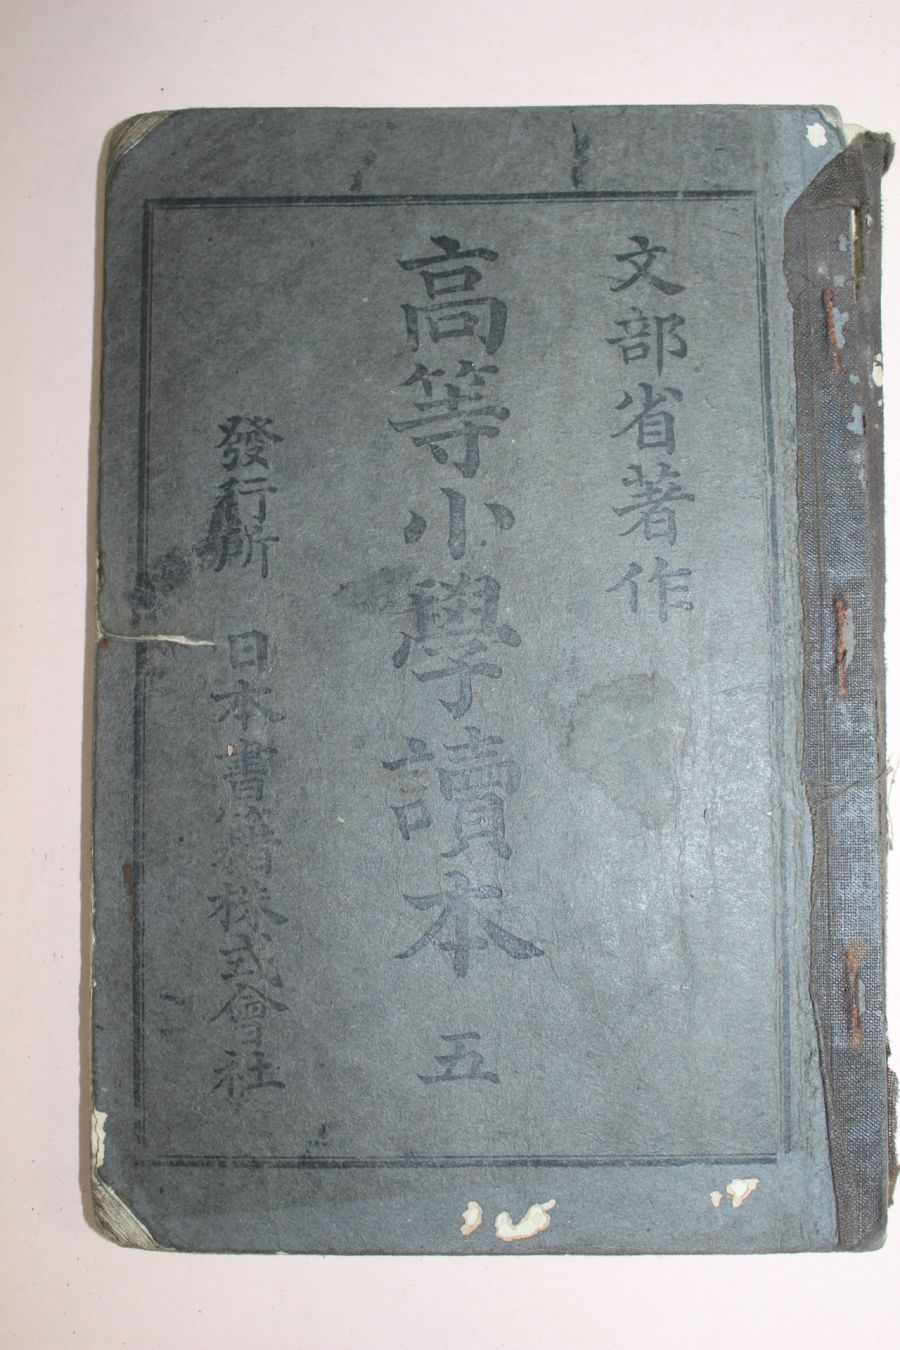 文部省著作
高等小學讀本 五
發行所 日本書籍株式會社